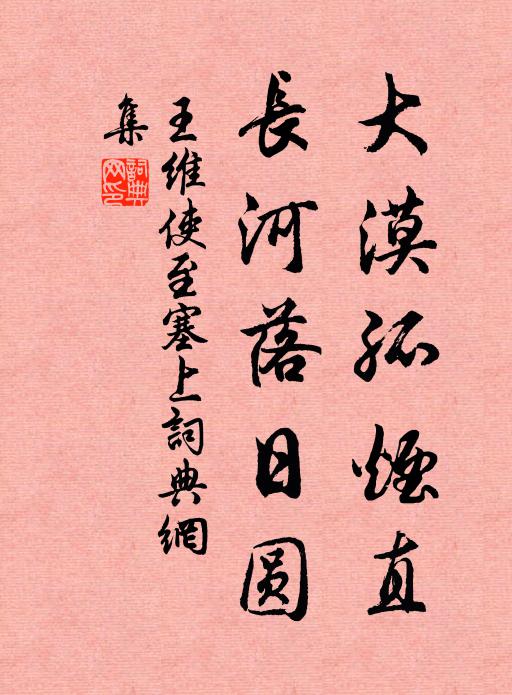 大漠孤煙直
長河落日圓
王維使至塞上詞典網
集
詞典网印